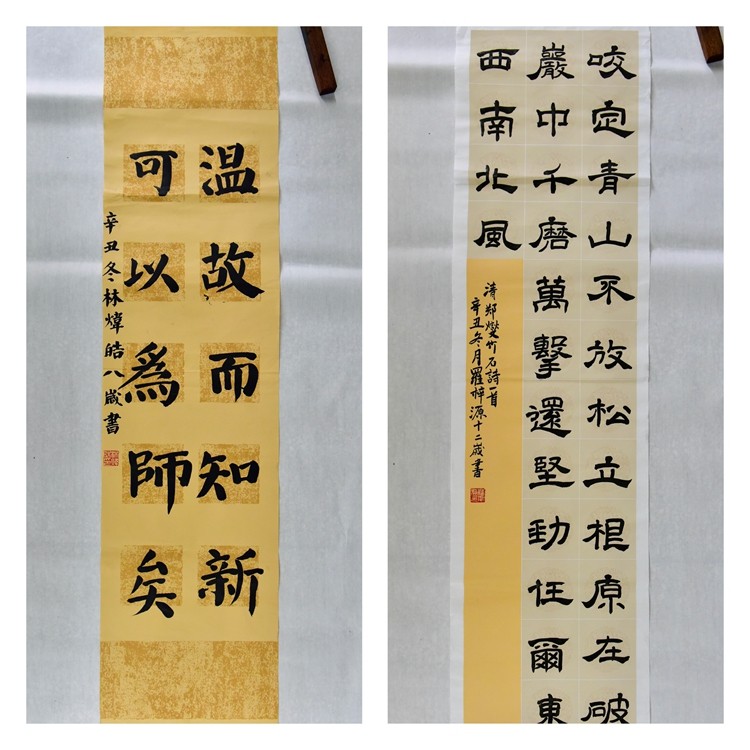 温故而知新
可以為師矣
辛丑冬林煒皓八歲書
咬定青山不放松立根原在破
巖中千磨萬擊還堅勁任爾東
西南北風
清鄭燮竹石詩一首
辛丑冬月羅梓源十二歲書